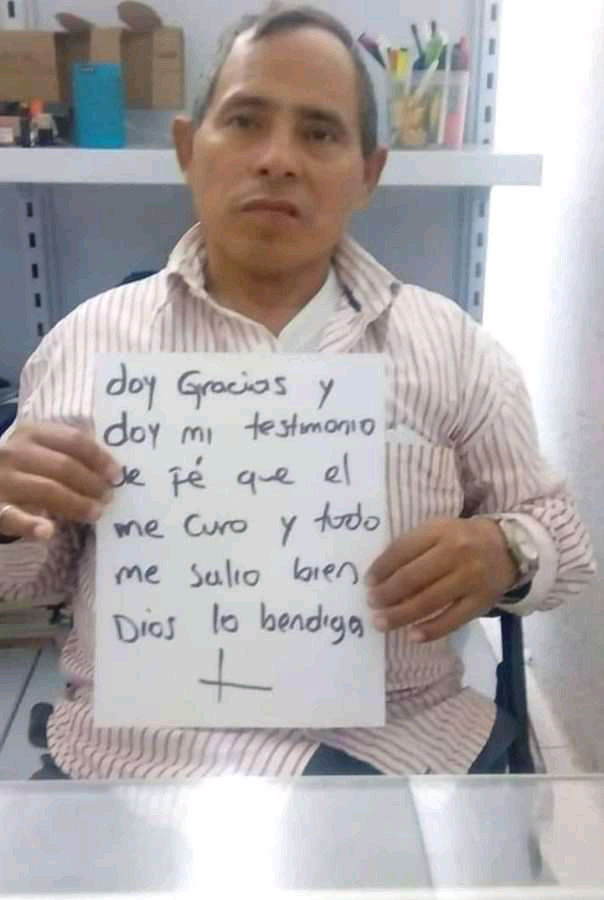 doy Gracias y
doy mi testimonio
de fé que el
me curo y todo
me salio bien
Dios lo bendiga